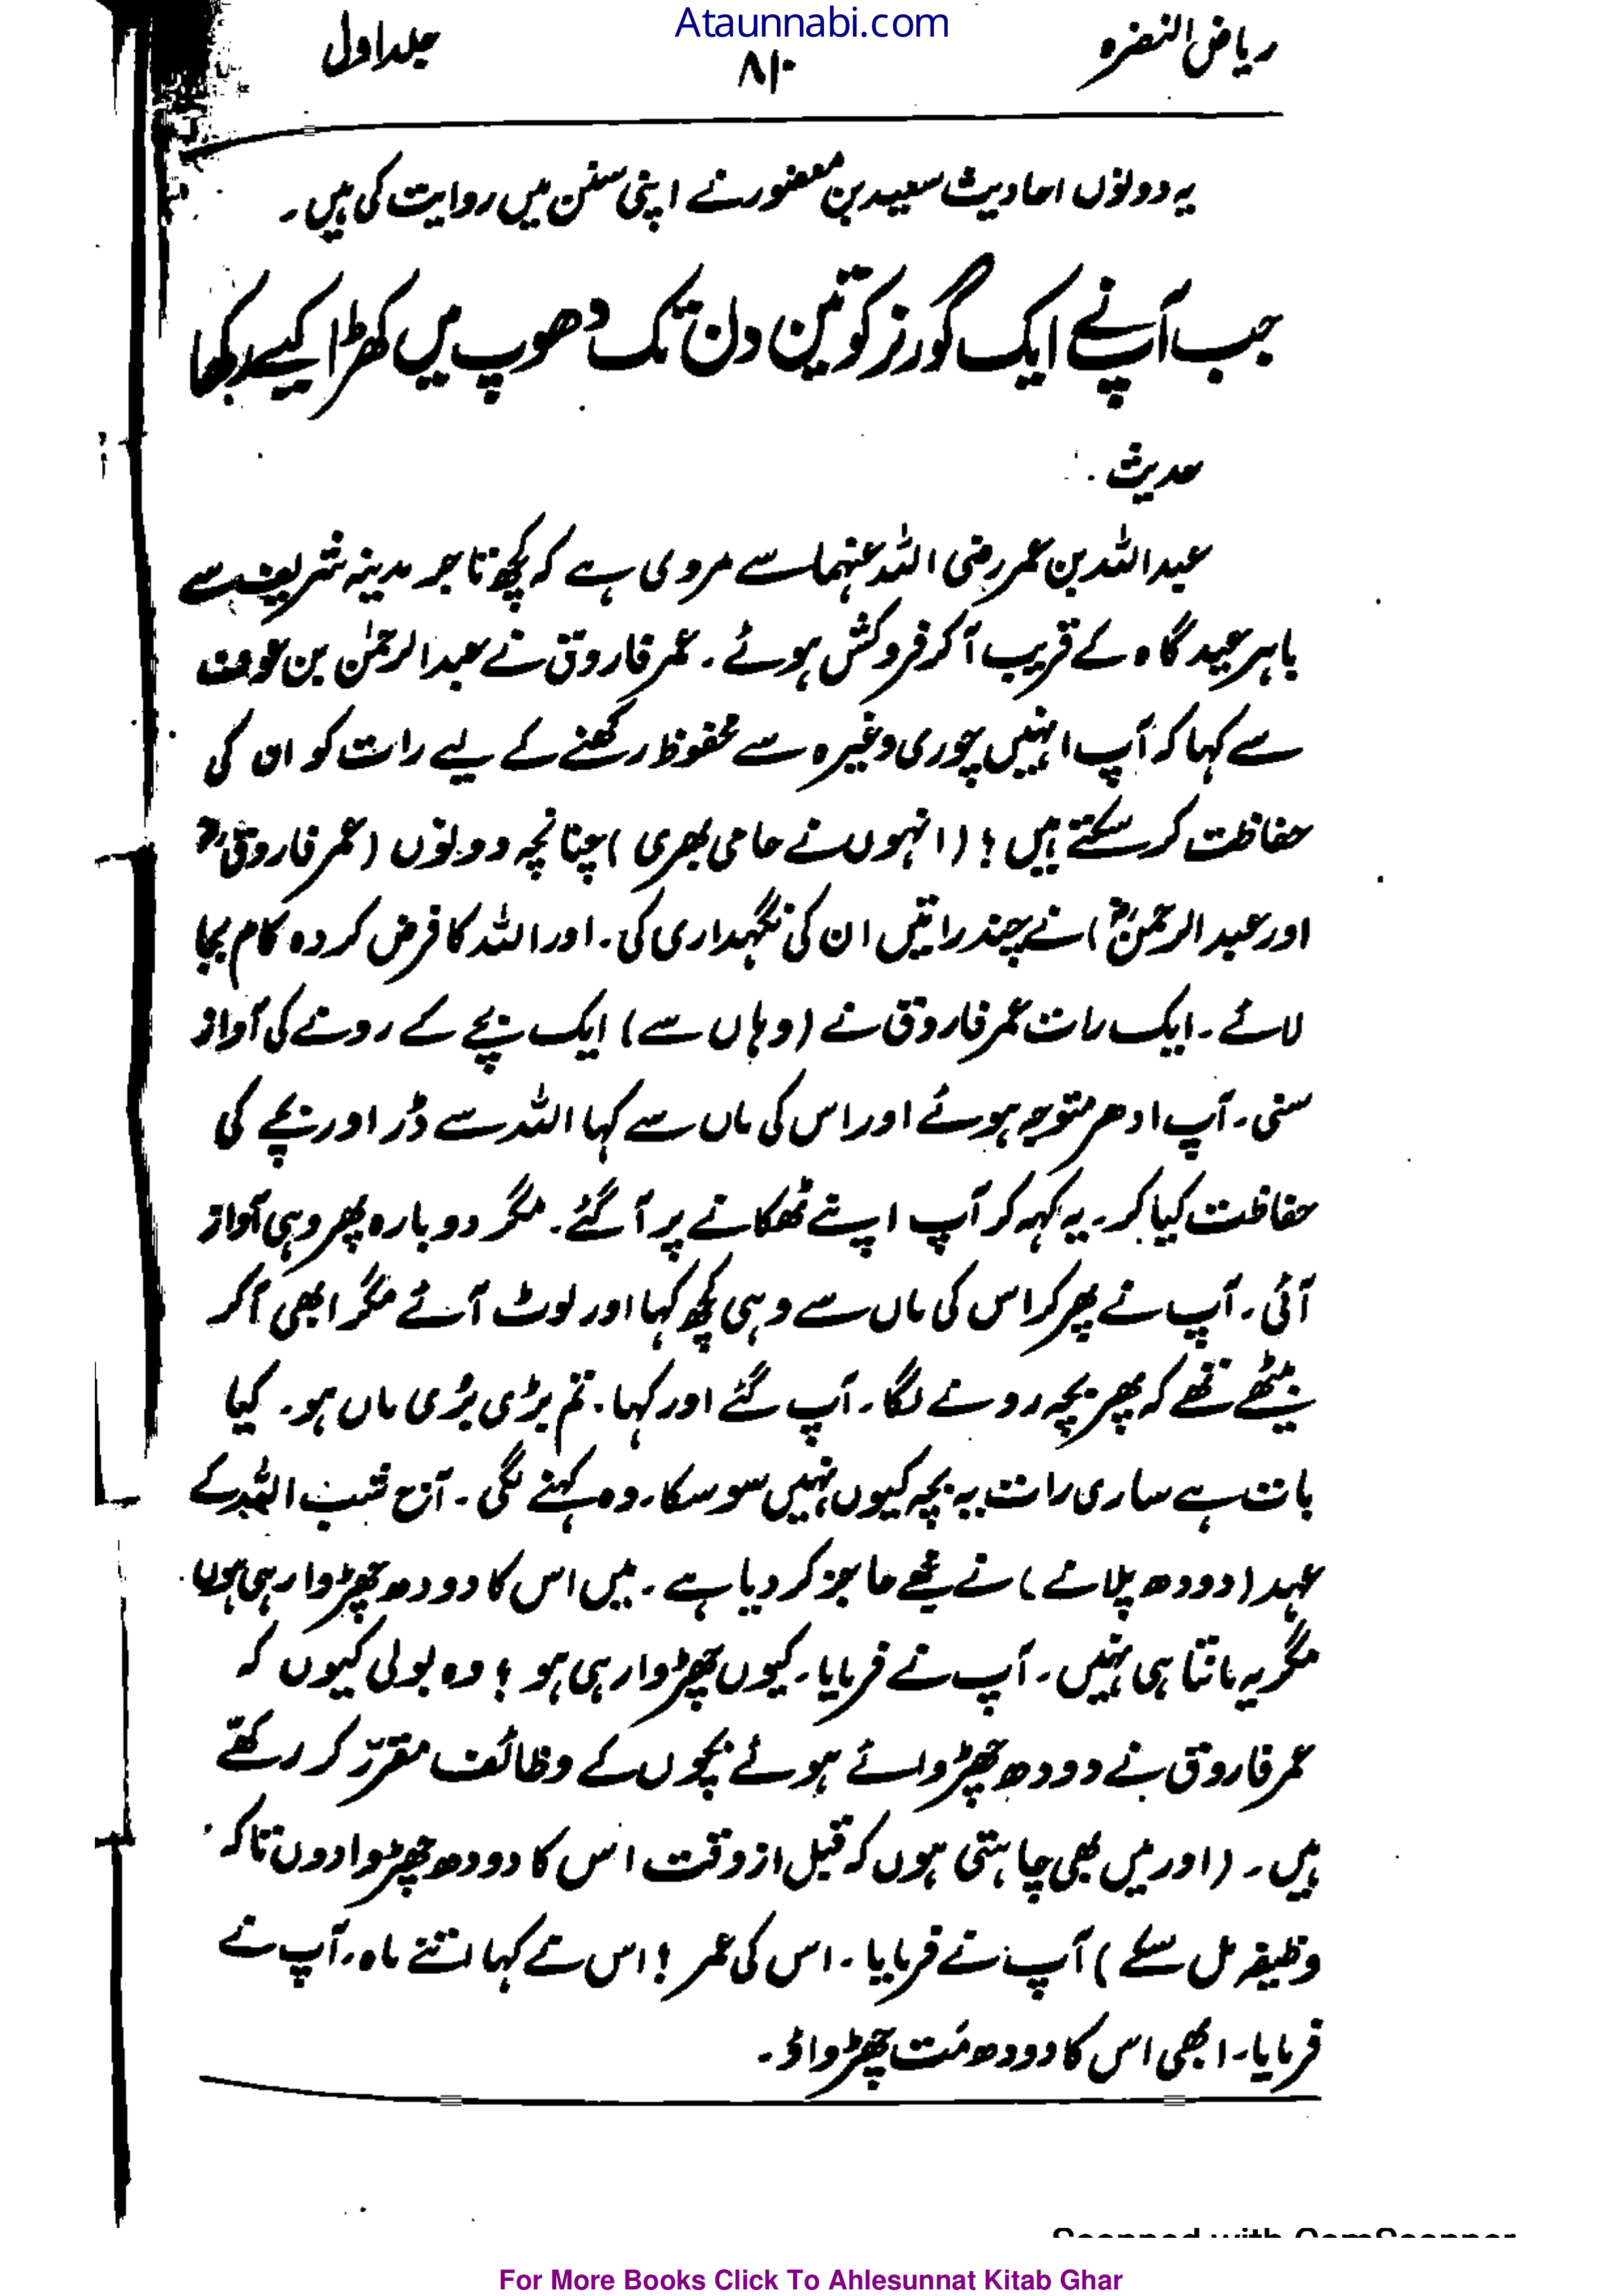 Ataunnabi.com
ریاض النضرہ ۸۱۰ جلد اول
یہ دونوں احادیث سعید بن منصور نے اپنی سنن میں روایت کی ہیں۔
جب آپ نے ایک گورنر کو تین دن تک دھوپ میں کھڑا کیے رکھا
حدیث
عبداللہ بن عمر رضی اللہ عنہما سے مروی ہے کہ کچھ تاجر مدینہ شریف سے
باہر عید گاہ کے قریب آکر فروکش ہوئے۔ عمر فاروق نے عبدالرحمٰن بن عوف
سے کہا کہ آپ انہیں چوری وغیرہ سے محفوظ رکھنے کے لیے رات کو ان کی
حفاظت کر سکتے ہیں؟ (انہوں نے حامی بھری) چنانچہ دونوں (عمر فاروقؓ
اور عبدالرحمنؓ) نے چند راتیں ان کی نگہداری کی۔ اور اللہ کا فرض کردہ کام بجا
لائے۔ ایک رات عمر فاروق نے (وہاں سے) ایک بچے کے رونے کی آواز
سنی۔ آپ ادھر متوجہ ہوئے اور اس کی ماں سے کہا اللہ سے ڈر اور بچے کی
حفاظت کیا کر۔ یہ کہہ کر آپ اپنے ٹھکانے پر آگئے۔ مگر دوبارہ پھر وہی آواز
آئی۔ آپ نے پھر کر اس کی ماں سے وہی کچھ کہا اور لوٹ آئے مگر ابھی آکر
بیٹھے تھے کہ پھر بچہ رونے لگا۔ آپ گئے اور کہا۔ تم بڑی بُری ماں ہو۔ کیا
بات ہے ساری رات یہ بچہ کیوں نہیں سو سکا۔ وہ کہنے لگی۔ آج شب اللہ کے
عہد (دودھ پلانے) نے مجھے عاجز کر دیا ہے۔ میں اس کا دودھ چھڑوا رہی ہوں
مگر یہ مانتا ہی نہیں۔ آپ نے فرمایا۔ کیوں چھڑوا رہی ہو؟ وہ بولی کیوں کہ
عمر فاروق نے دودھ چھڑوائے ہوئے بچوں کے وظائف مقرّر کر رکھّے
ہیں۔ (اور میں بھی چاہتی ہوں کہ قبل از وقت اس کا دودھ چھڑوا دوں تاکہ
وظیفہ مل سکے) آپ نے فرمایا۔ اس کی عمر؟ اس نے کہا اتنے ماہ۔ آپ نے
فرمایا۔ ابھی اس کا دودھ مت چھڑواؤ۔
Scanned with CamScanner
For More Books Click To Ahlesunnat Kitab Ghar